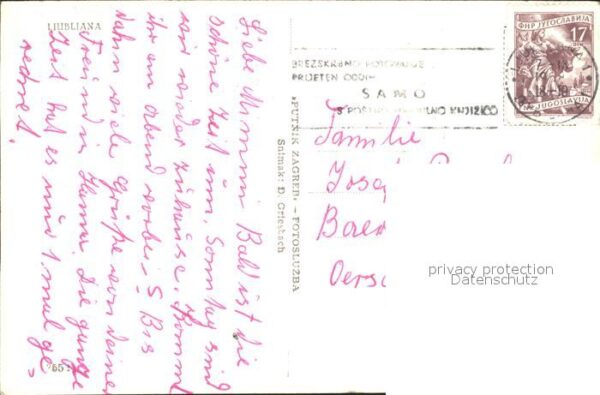 LJUBLJANA
Liebe Mimmi! Bald ist die
schöne Zeit um, Sonntag sind
wir wieder zuhause. Kommt
ihr am Abend vorbei? Bis
dahin viele Grüße von deiner
Freundin Hanna. Die ganze
Zeit hat es nur 1 mal ge=
regnet.
"PUTNIK ZAGREB" – FOTOSLUŽBA
Snimak: D. Griesbach
BREZSKRBNO POTOVANJE
PRIJETEN ODDIH
SAMO
S POŠTNO HRANILNO KNJIŽICO
ФНР ЈУГОСЛАВИЈА
17
FNR JUGOSLAVIJA
Familie
Josef
Baer
Oers
privacy protection
Datenschutz